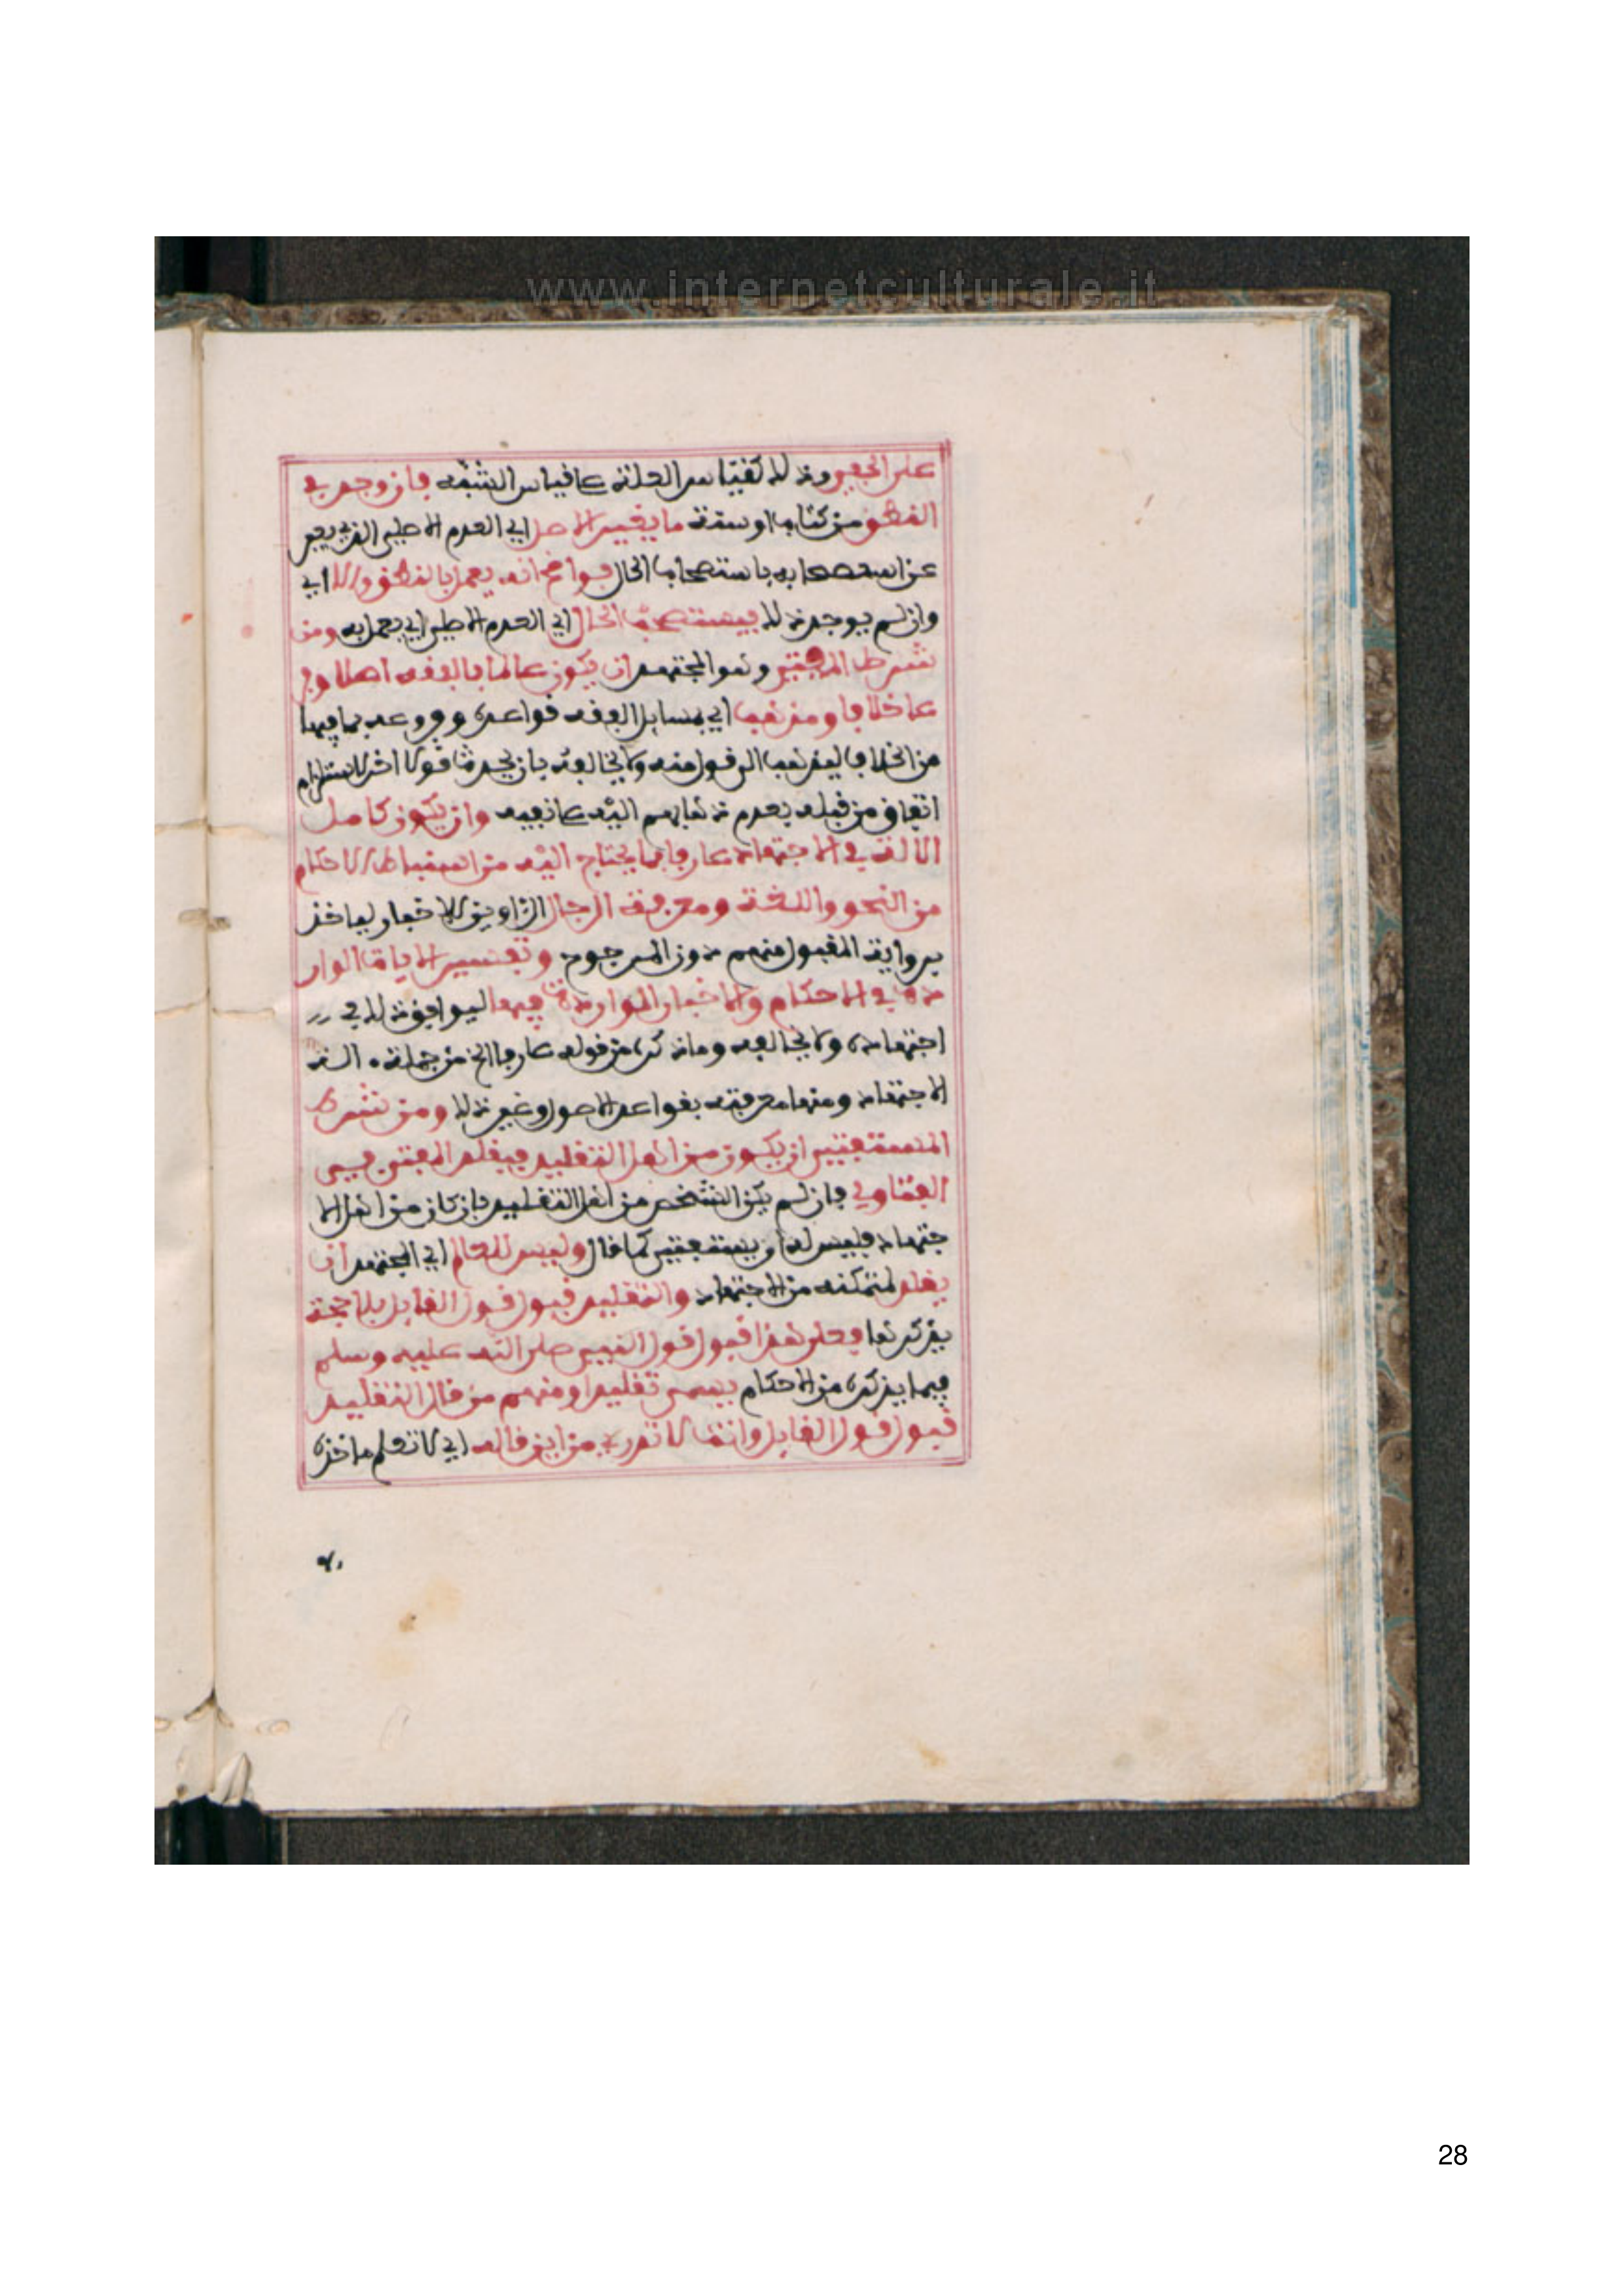 www.internetculturale.it
على الخفي وذلك كقياس العلة على قياس الشبه فان وجد في
النطق من كتاب او سنة ما يغير الاصل اي العدم الاصلي الذي يعبر
عن استصحابه باستصحاب الحال فواضح انه يعمل بالنطق والا اي
وان لم يوجد ذلك فيستصحب الحال اي العدم الاصلي اي يعمل به ومن
شرط المفتي وهو المجتهد ان يكون عالما بالفقه اصلا وفر
عا خلافا ومذهبا اي بمسايل الفقه قواعده وفروعه بما فيها
من الخلاف ليذهب الى قول منه ولا يخالفه بان يحدث قولا اخر لاستلزام
اتفاق من قبله بعدم ذهابهم اليه على نفيه وان يكون كامل
الالة في الاجتهاد عارفا بما يحتاج اليه من استنباط الاحكام
من النحو واللغة ومعرفة الرجال الراوين للاخبار لياخذ
برواية المقبول منهم دون المجروح وتفسير الايات الوار
دة في الاحكام والاخبار الواردة فيها ليوافق ذلك في
اجتهاده ولا يخالفه وما ذكره من قوله عارفا الخ من جملة الة
الاجتهاد ومنها معرفته بقواعد الاصول وغير ذلك ومن شرط
المستفتي ان يكون من اهل التقليد فيقلد المفتي في
الفتاوي فان لم يكن الشخص من اهل التقليد بان كان من اهل الا
جتهاد فليس له ان يستفتي كما قال وليس للعالم اي المجتهد ان
يقلد لتمكنه من الاجتهاد والتقليد قبول قول القايل بلا حجة
يذكرها فعلى هذا قبول قول النبي صلى الله عليه وسلم
فيما يذكره من الاحكام يسمى تقليدا ومنهم من قال التقليد
قبول قول القايل وانت لا تدري من اين قاله اي لا تعلم ماخذه
28